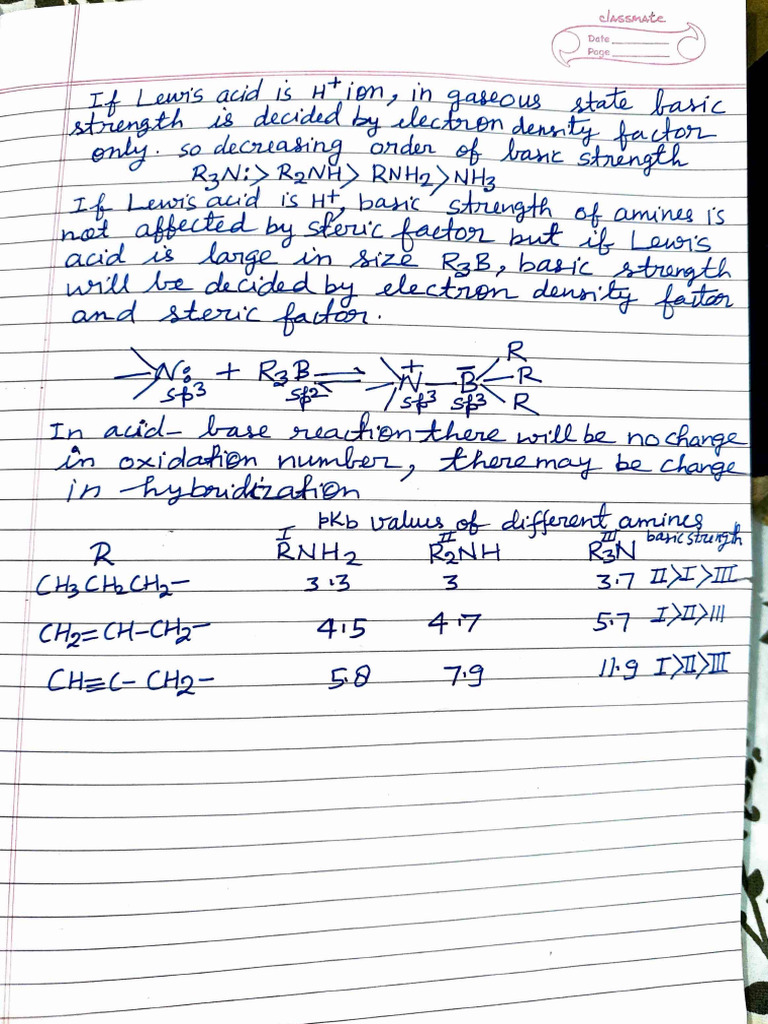 classmate
Date
Page
If Lewis acid is H+ ion, in gaseous state basic
strength is decided by electron density factor
only. so decreasing order of basic strength
R3N: > R2NH > RNH2 > NH3
If Lewis acid is H+, basic strength of amines is
not affected by steric factor but if Lewis
acid is large in size R3B, basic strength
will be decided by electron density factor
and steric factor.
N: + R3B ⇌ N+—B- R R R
sp3 sp2 sp3 sp3
In acid-base reaction there will be no change
in oxidation number, there may be change
in hybridization
pKb values of different amines
I II III basic strength
R RNH2 R2NH R3N
CH3CH2CH2— 3.3 3 3.7 II>I>III
CH2=CH-CH2— 4.5 4.7 5.7 I>II>III
CH≡C-CH2— 5.8 7.9 11.9 I>II>III